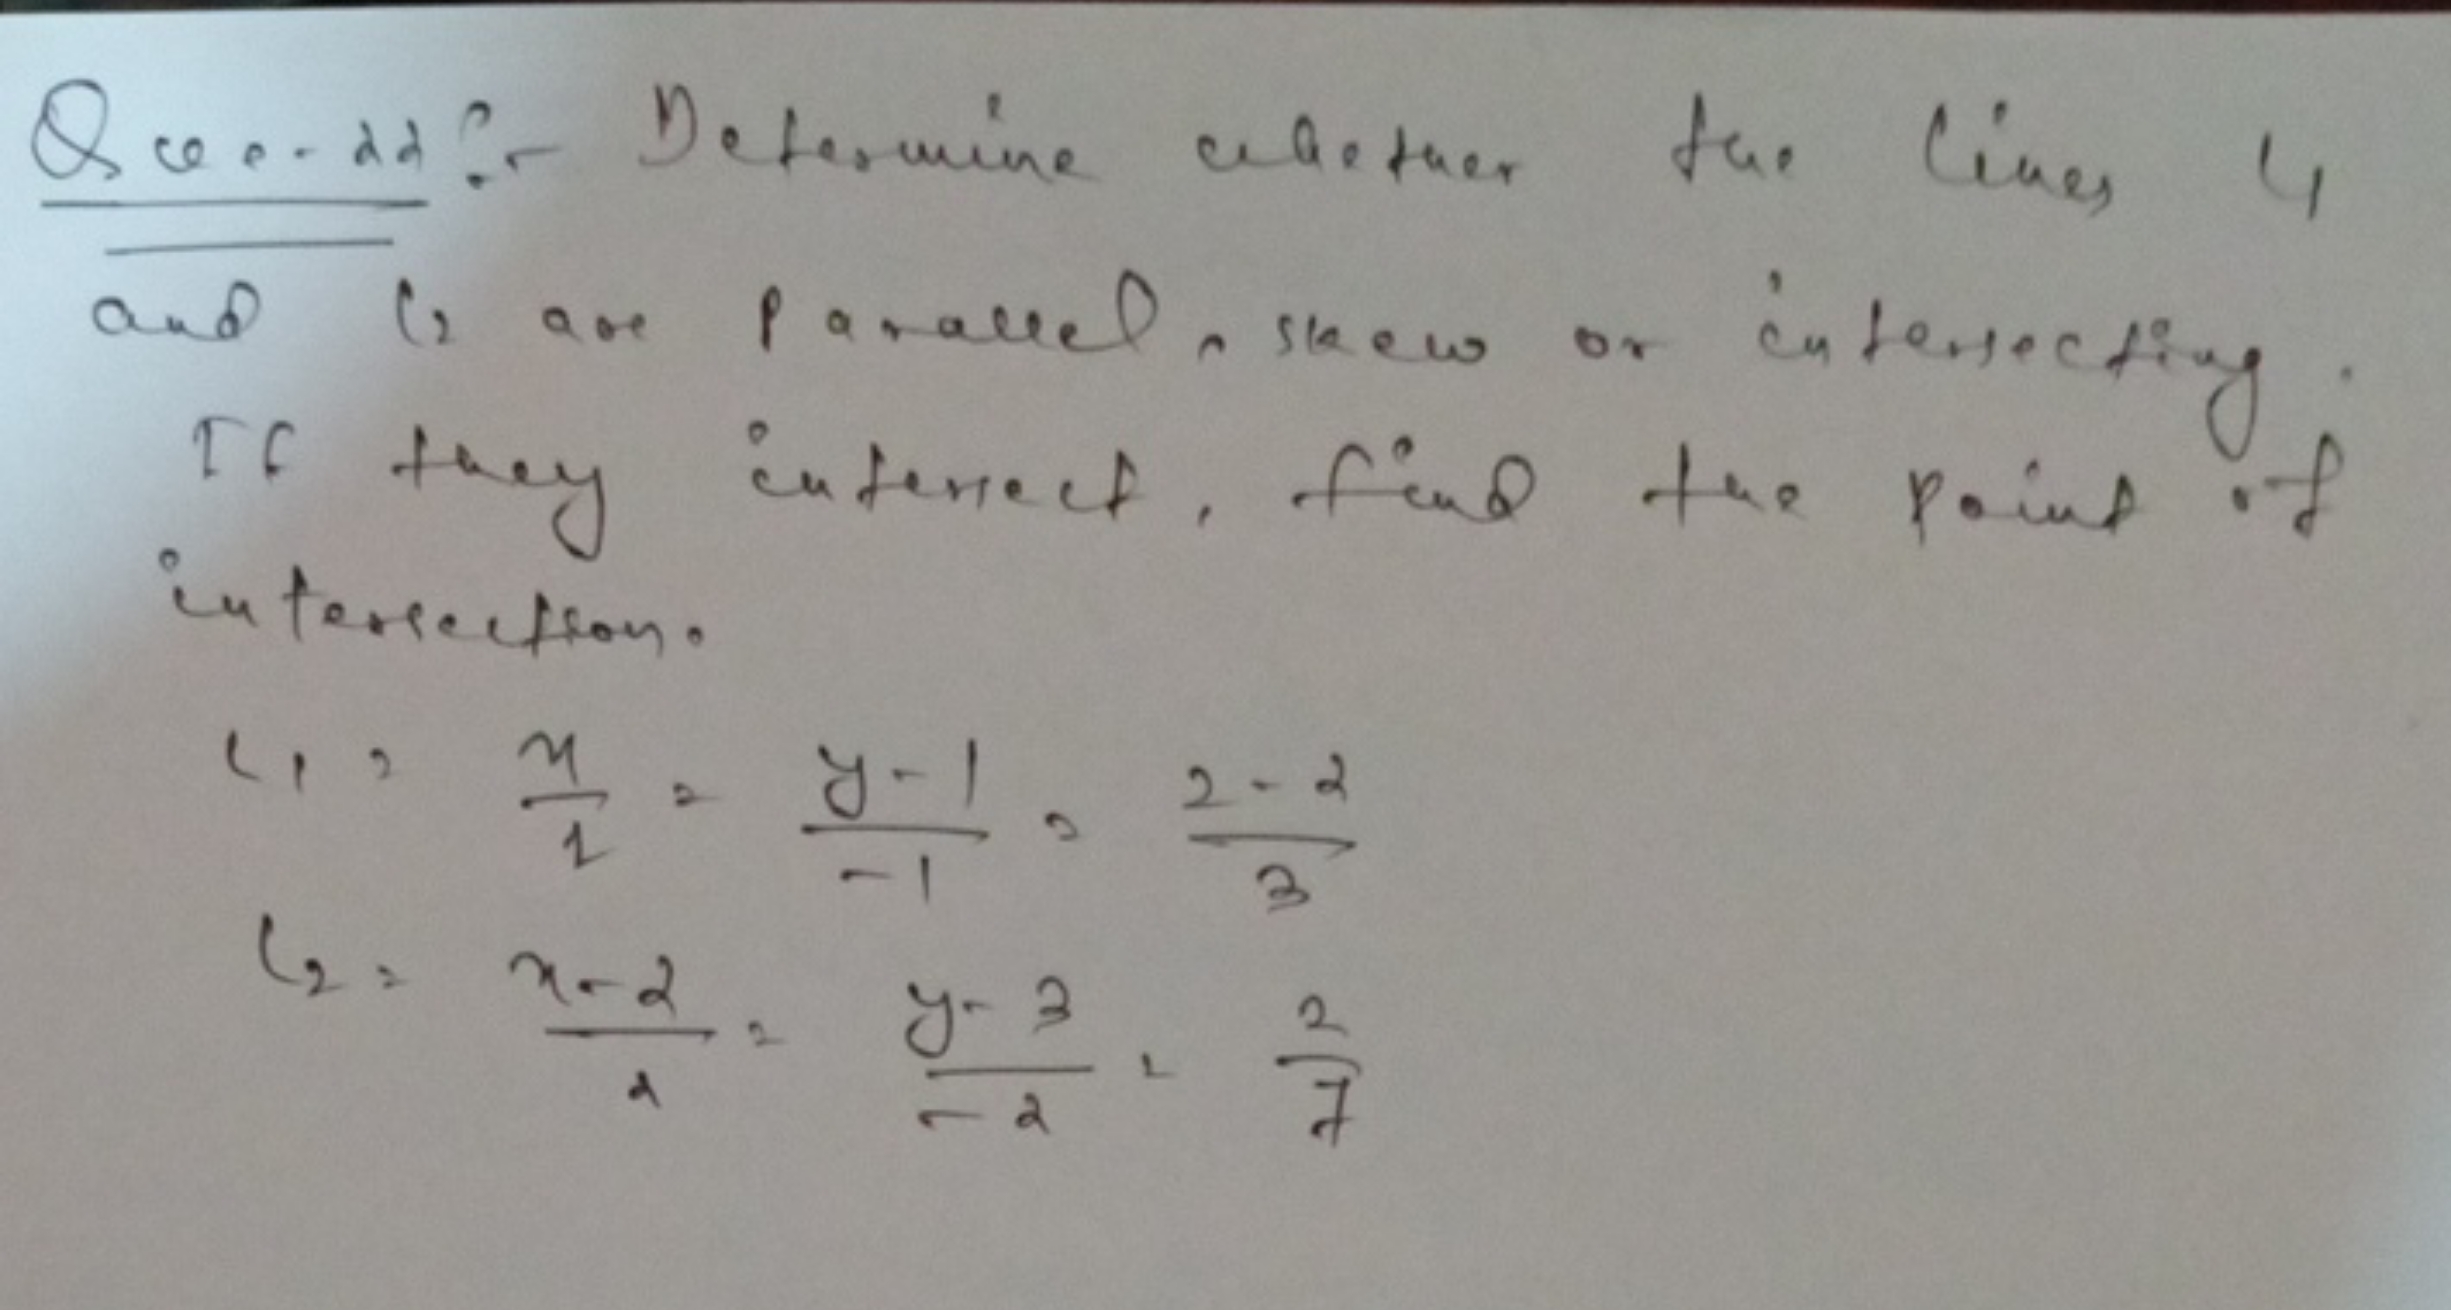 Que-22:- Determine whether the lines L1
and L2 are parallel, skew or intersecting.
If they intersect, find the point of
intersection.
L1 = x/1 = y-1/-1 = z-2/3
L2 = x-2/2 = y-3/-2 = z/7